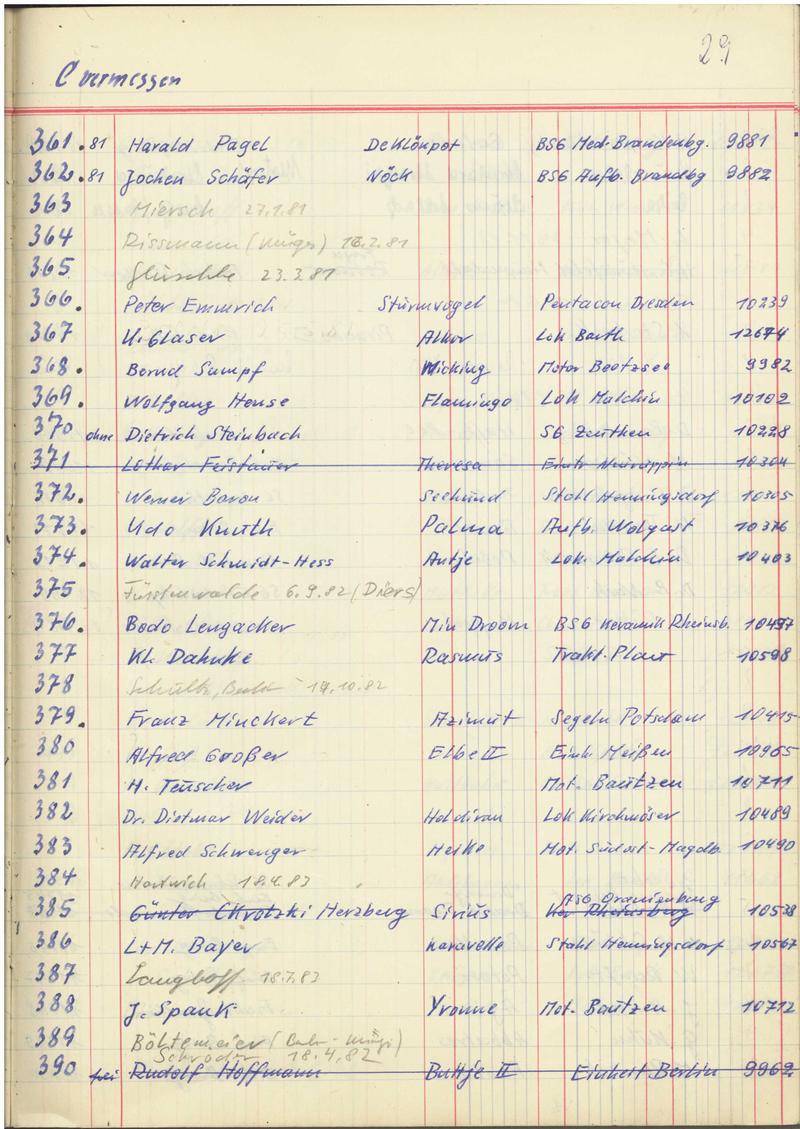 29
C vermessen
361. 81 Harald Pagel De Klönpot BSG Med. Brandenbg. 9881
362. 81 Jochen Schäfer Nöck BSG Aufb. Brandbg 9882
363 Miersch 27.1.81
364 Rissmann 16.2.81
365 23.3.81
366. Peter Emmrich Sturmvogel Pentacon Dresden 10239
367 U. Glaser Alkor Lok Barth 12674
368. Bernd Sampf Wicking Motor Beetzsee 9982
369. Wolfgang Hense Flamingo Lok Malchin 10102
370 ohne Dietrich Steinbach SG Zeuthen 10228
371 Lothar Theresa Einh. Neuruppin 10304
372. Werner Baron Seehund Stahl Hennigsdorf 10305
373. Udo Knuth Palma Aufb. Wolgast 10376
374. Walter Schmidt-Hess Antje Lok. Malchin 10403
375 Fürstenwalde 6.9.82 (Diers)
376. Bodo Lengacker Min Droom BSG Keramik Rheinsb. 10497
377 Kl. Dahnke Rasmus Trakt. Plau 10598
378 Schultz, 14.10.82
379. Franz Minckert Azimut Segeln Potsdam 10415
380 Alfred Großer Elbe II Einh. Meißen 10965
381 H. Teuscher Mot. Bautzen 10711
382 Dr. Dietmar Weider Haldiran Lok Kirchmöser 10489
383 Alfred Schwenger Heike Mot. Südost-Magdb. 10490
384 Hartwich 18.4.83
ASG Oranienburg
385 Günter Herzberg Sirius Rheinsberg 10538
386 L+M. Bayer Karavelle Stahl Hennigsdorf 10567
387 Langhoff 18.7.83
388 J. Spank Yvonne Mot. Bautzen 10712
389 Böltemeier
Schröder 18.4.82
390 frei Rudolf Hoffmann Buttje II Einheit Berlin 9962